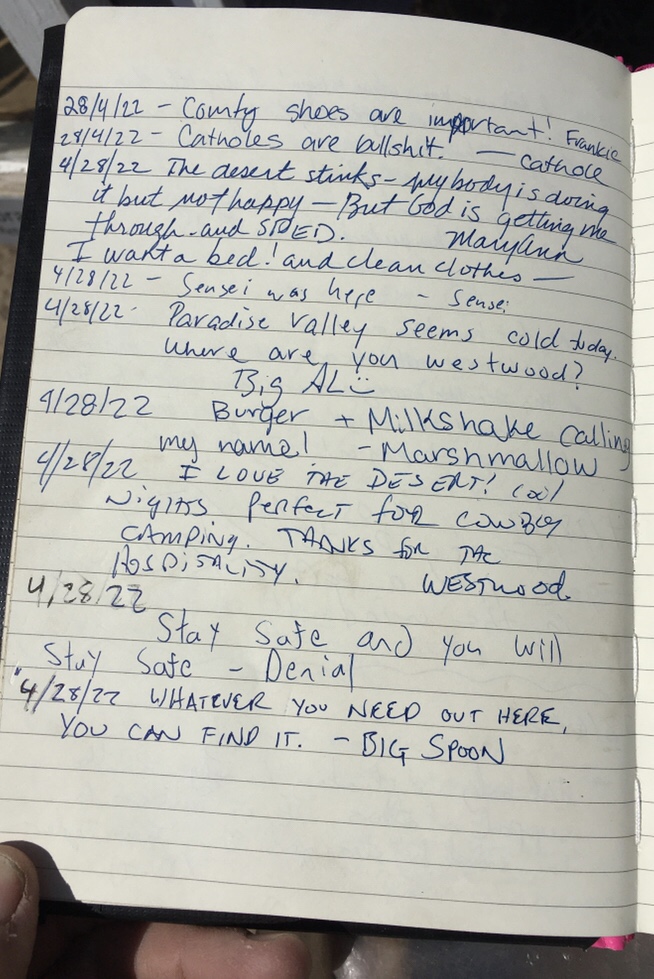 28/4/22 - Comfy shoes are important! Frankie
28/4/22 - Catholes are bullshit. — Cathole
4/28/22 The desert stinks - my body is doing
it but not happy — But God is getting me
through - and SPED. MaryAnn
I want a bed! and clean clothes —
4/28/22 - Sensei was here - Sensei
4/28/22 - Paradise Valley seems cold today.
Where are you Westwood?
Big AL
4/28/22 Burger + Milkshake calling
my name! - Marshmallow
4/28/22 I LOVE THE DESERT! Cool
Nights perfect for cowboy
CAMPING. THANKS for THE
HOSPITALITY. WESTWOOD.
4/28/22
Stay Safe and you will
Stay Safe - Denial
4/28/22 WHATEVER YOU NEED OUT HERE,
YOU CAN FIND IT. - BIG SPOON